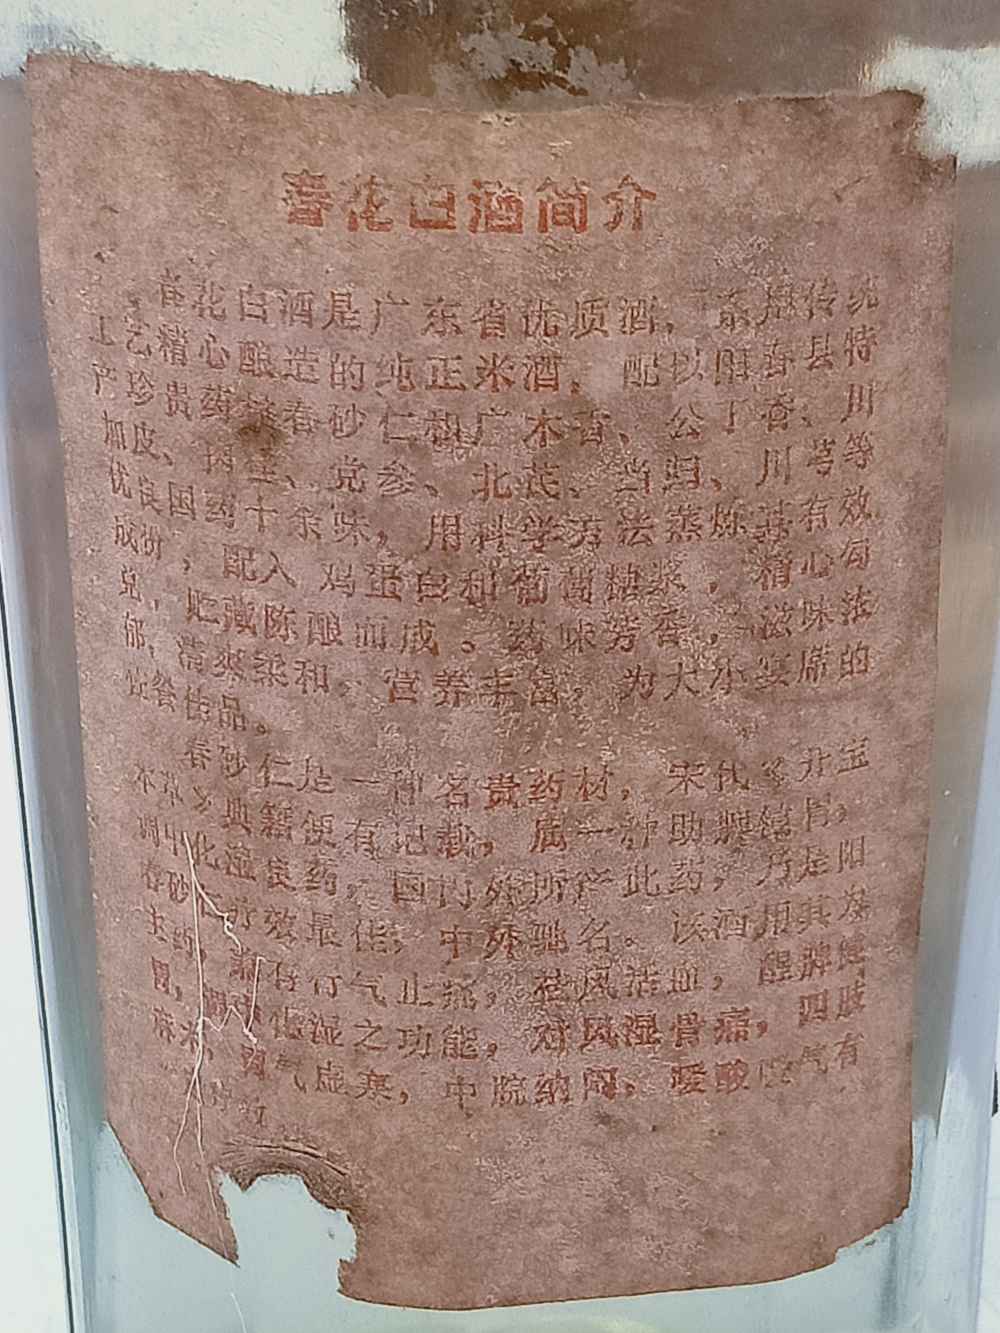 春花白酒简介
春花白酒是广东省优质酒，系用传统
工艺精心酿造的纯正米酒，配以阳春县特
产珍贵药材春砂仁和广木香、公丁香、川
加皮、肉桂、党参、北芪、当归、川芎等
优良国药十余味，用科学方法蒸炼其有效
成份，配入鸡蛋白和葡萄糖浆，精心勾
兑，贮藏陈酿而成。药味芳香，滋味浓
郁，清爽柔和。营养丰富，为大小宴席的
饮誉佳品。
春砂仁是一种名贵药材，宋代开宝
本草典籍便有记载，属一种助脾健胃，
调中化湿良药，国内外所产此药，乃是阳
春砂仁疗效最佳，中外驰名。该酒用其为
主药，兼有行气止痛，祛风活血，醒脾健
胃，化湿之功能，对风湿骨痛，四肢
麻木，胃气虚寒，中脘纳闷，嗳酸气有